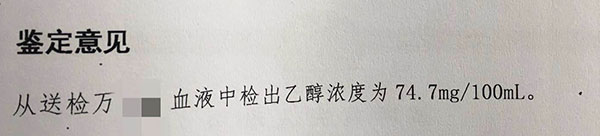 鉴定意见
从送检万 血液中检出乙醇浓度为 74.7mg/100mL。